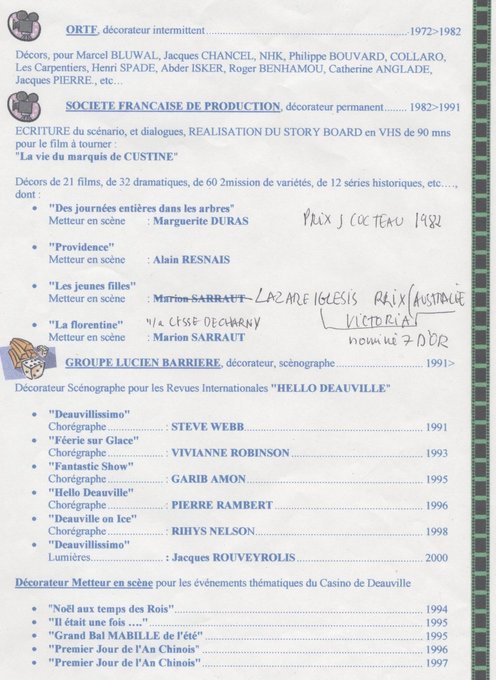 ORTF, décorateur intermittent.....................................................................1972>1982
Décors, pour Marcel BLUWAL, Jacques CHANCEL, NHK, Philippe BOUVARD, COLLARO,
Les Carpentiers, Henri SPADE, Abder ISKER, Roger BENHAMOU, Catherine ANGLADE,
Jacques PIERRE., etc…
SOCIETE FRANCAISE DE PRODUCTION, décorateur permanent........ 1982>1991
ECRITURE du scénario, et dialogues, REALISATION DU STORY BOARD en VHS de 90 mns
pour le film à tourner :
"La vie du marquis de CUSTINE"
Décors de 21 films, de 32 dramatiques, de 60 2mission de variétés, de 12 séries historiques, etc….,
dont :
• "Des journées entières dans les arbres"
Metteur en scène : Marguerite DURAS PRIX J COCTEAU 1982
• "Providence"
Metteur en scène : Alain RESNAIS
• "Les jeunes filles"
Metteur en scène : Marion SARRAUT LAZARE IGLESIS PRIX AUSTRALIE
VICTORIA
• "La florentine" LA CSSE DE CHARNY
Metteur en scène : Marion SARRAUT nominé 7 D'OR
GROUPE LUCIEN BARRIERE, décorateur, scénographe................................1991>
Décorateur Scénographe pour les Revues Internationales "HELLO DEAUVILLE"
• "Deauvillissimo"
Chorégraphe....................: STEVE WEBB....................................................1991
• "Féerie sur Glace"
Chorégraphe....................: VIVIANNE ROBINSON....................................1993
• "Fantastic Show"
Chorégraphe....................: GARIB AMON....................................................1995
• "Hello Deauville"
Chorégraphe....................: PIERRE RAMBERT............................................1996
• "Deauville on Ice"
Chorégraphe....................: RIHYS NELSON................................................1998
• "Deauvillissimo"
Lumières..........................: Jacques ROUVEYROLIS....................................2000
Décorateur Metteur en scène pour les événements thématiques du Casino de Deauville
• "Noël aux temps des Rois"....................................................................1994
• "Il était une fois …."............................................................................1995
• "Grand Bal MABILLE de l'été"............................................................1995
• "Premier Jour de l'An Chinois"............................................................1996
• "Premier Jour de l'An Chinois"............................................................1997